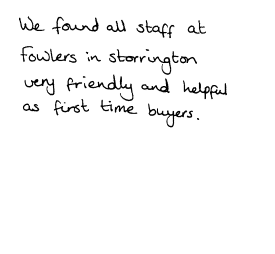 We found all staff at
Fowlers in Storrington
very friendly and helpful
as first time buyers.